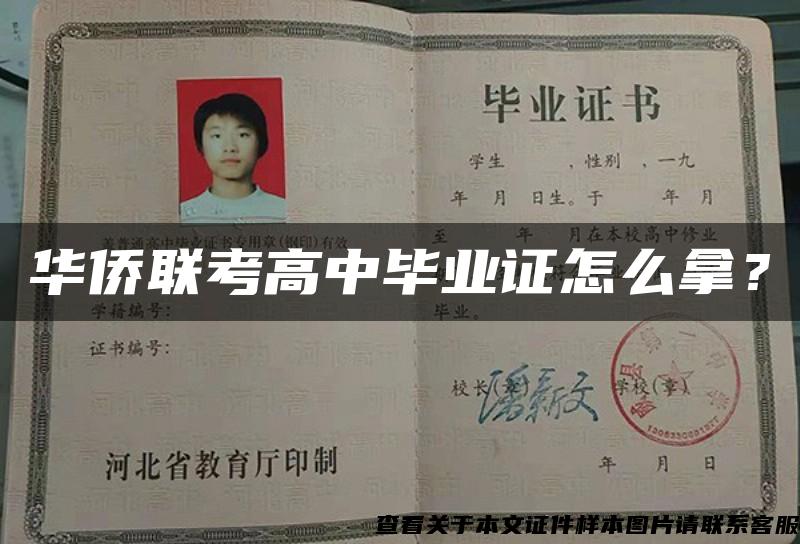 毕业证书
学生 ,性别 ,一九
年 月 日生。于 年 月
盖普通高中毕业证书专用章(钢印)有效
至 年 月在本校高中修业
华侨联考高中毕业证怎么拿？
学籍编号：
毕业。
证书编号：
校长(章) 潘新文 学校(章)
河北省教育厅印制
年 月 日
查看关于本文证件样本图片请联系客服